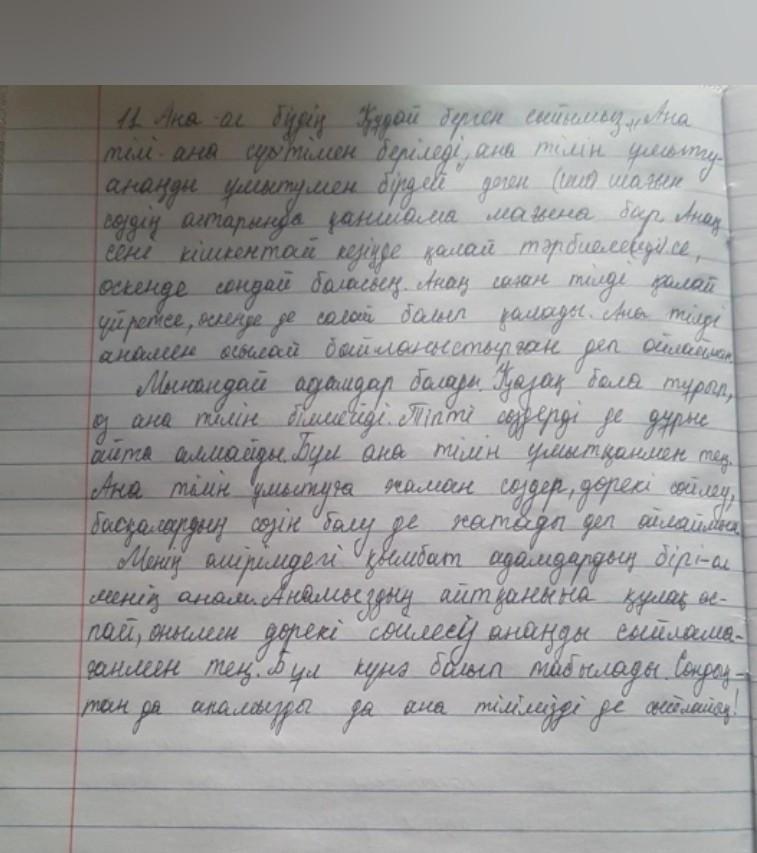 11. Ана-ол біздің Құдай берген сыйымыз. „Ана
тілі-ана сүтімен беріледі, ана тілін ұмыту-
анаңды ұмытумен бірдей" деген шағын
сөздің астарында қаншама мағына бар. Анаң
сені кішкентай кезіңде қалай тәрбиелесе,
өскенде сондай боласың. Анаң саған тілді қалай
үйретсе, өскенде де солай болып қалады. Ана тілді
анамен осылай байланыстырған деп ойлаймын.
Мынандай адамдар болады. Қазақ бола тұрып,
өз ана тілін білмейді. Тіпті сөздерді де дұрыс
айта алмайды. Бұл ана тілін ұмытқанмен тең.
Ана тілін ұмытуға жаман сөздер, дөрекі сөйлеу,
басқалардың сөзін бөлу де жатады деп ойлаймын.
Менің өмірімдегі қымбат адамдардың бірі-ол
менің анам. Анамыздың айтқанына құлақ ас-
пай, онымен дөрекі сөйлесу анаңды сыйлама-
ғанмен тең. Бұл күнә болып табылады. Сондық-
тан да анамызды да ана тілімізді де сыйлайық!